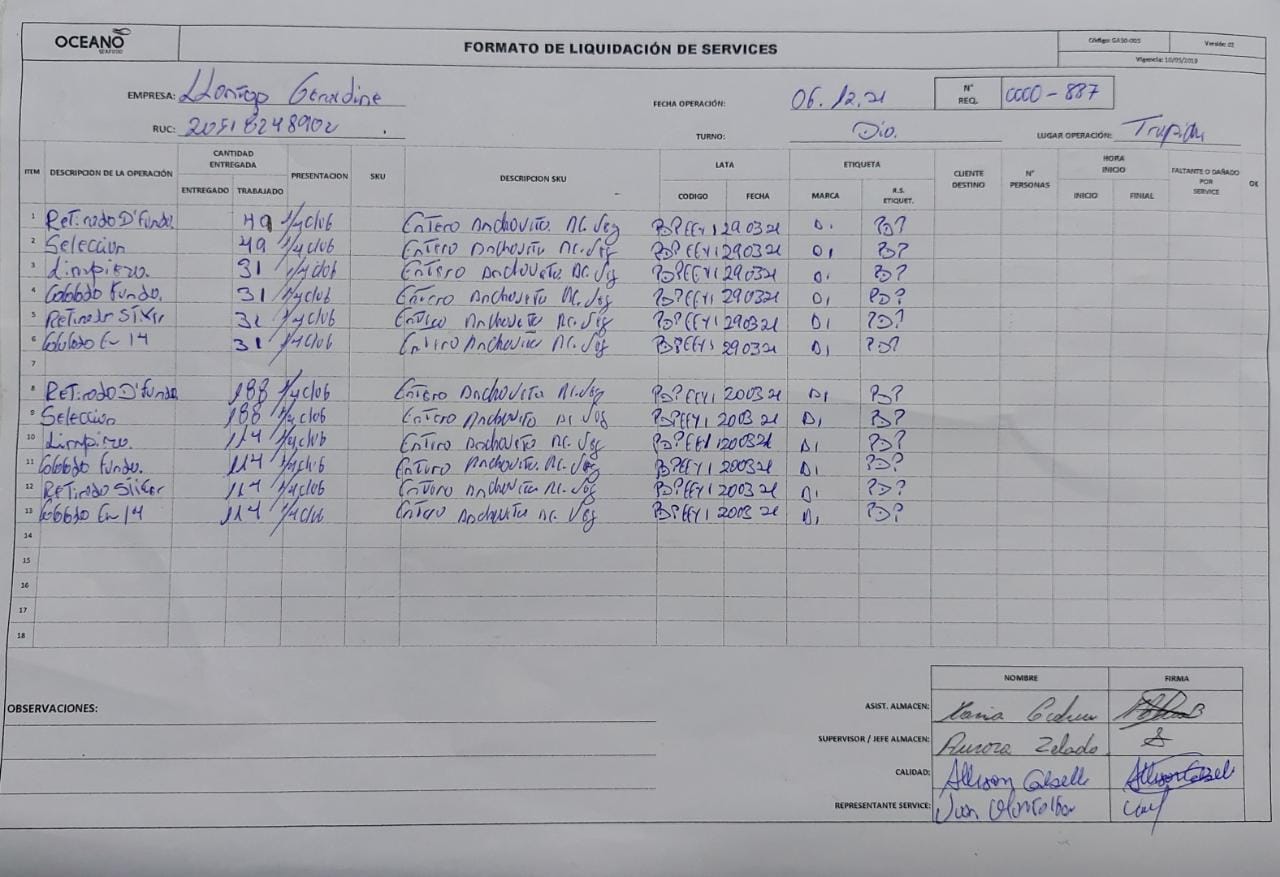 OCEANO
SEAFOOD
FORMATO DE LIQUIDACIÓN DE SERVICES
Código: GA30-005
Versión: 02
Vigencia: 10/05/2019
EMPRESA: Llontop Geraldine
FECHA OPERACIÓN: 06.12.21
N° REQ. 0000-887
RUC: 20518248902
TURNO: Dia.
LUGAR OPERACIÓN:
ITEM DESCRIPCION DE LA OPERACIÓN CANTIDAD ENTREGADA ENTREGADO TRABAJADO PRESENTACION SKU DESCRIPCION SKU LATA CODIGO FECHA ETIQUETA MARCA R.S. ETIQUET. CLIENTE DESTINO N° PERSONAS HORA INICIO INICIO FINIAL FALTANTE O DAÑADO POR SERVICE
1 Retirado D'funda. 49 1/4 club Entero Anchoveta Ac. Veg 290321 D1
2 Seleccion 49 1/4 club Entero Anchoveta Ac. Veg 290321 D1
3 Limpieza. 31 1/4 club Entero Anchoveta Ac. Veg 290321 D1
4 Colocado Funda. 31 1/4 club Entero Anchoveta Ac. Veg 290321 D1
5 Retirado Sticker 31 1/4 club Entero Anchoveta Ac. Veg 290321 D1
6 Colocado En 14 31 1/4 club Entero Anchoveta Ac. Veg 290321 D1
7
8 Retirado D'funda 188 1/4 club Entero Anchoveta Ac. Veg 200321 D1
9 Seleccion 188 1/4 club Entero Anchoveta Ac Veg 200321 D1
10 Limpieza. 114 1/4 club Entero Anchoveta Ac. Veg 200321 D1
11 Colocado Funda. 114 1/4 club Entero Anchoveta Ac. Veg 200321 D1
12 Retirado Sticker 114 1/4 club Entero Anchoveta Ac. Veg 200321 D1
13 Colocado En 14 114 1/4 club Entero Anchoveta Ac. Veg 200321 D1
14
15
16
17
18
NOMBRE FIRMA
OBSERVACIONES:
ASIST. ALMACEN:
SUPERVISOR / JEFE ALMACEN: Aurora Zelada
CALIDAD: Allison
REPRESENTANTE SERVICE: Juan